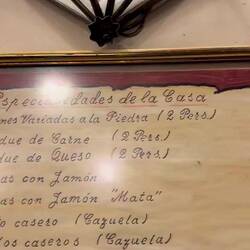 Especialidades de la Casa
nes Variadas a la Piedra (2 Pers.)
due de Carne (2 Pers.)
due de Queso (2 Pers.)
as con Jamón
as con Jamón "Mata"
o casero (Cazuela)
os caseros (Cazuela)